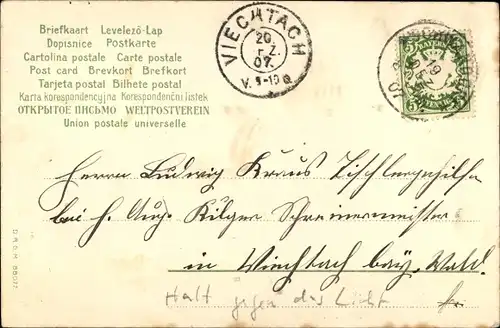 Briefkaart Levelező-Lap
Dopisnice Postkarte
Cartolina postale Carte postale
Post card Brevkort Brefkort
Tarjeta postal Bilhete postal
Karta korespondencyjna Korespondenční lístek
ОТКРЫТОЕ ПИСЬМО WELTPOSTVEREIN
Union postale universelle
VIECHTACH
20
DEZ.
07.
V. 9-10
BAYERN
5 5
Herrn Ludwig Kraus Tischlergehilfe
bei H. Aug. Kilger Schreinermeister
in Viechtach bay. Wald.
Halt gegen das Licht